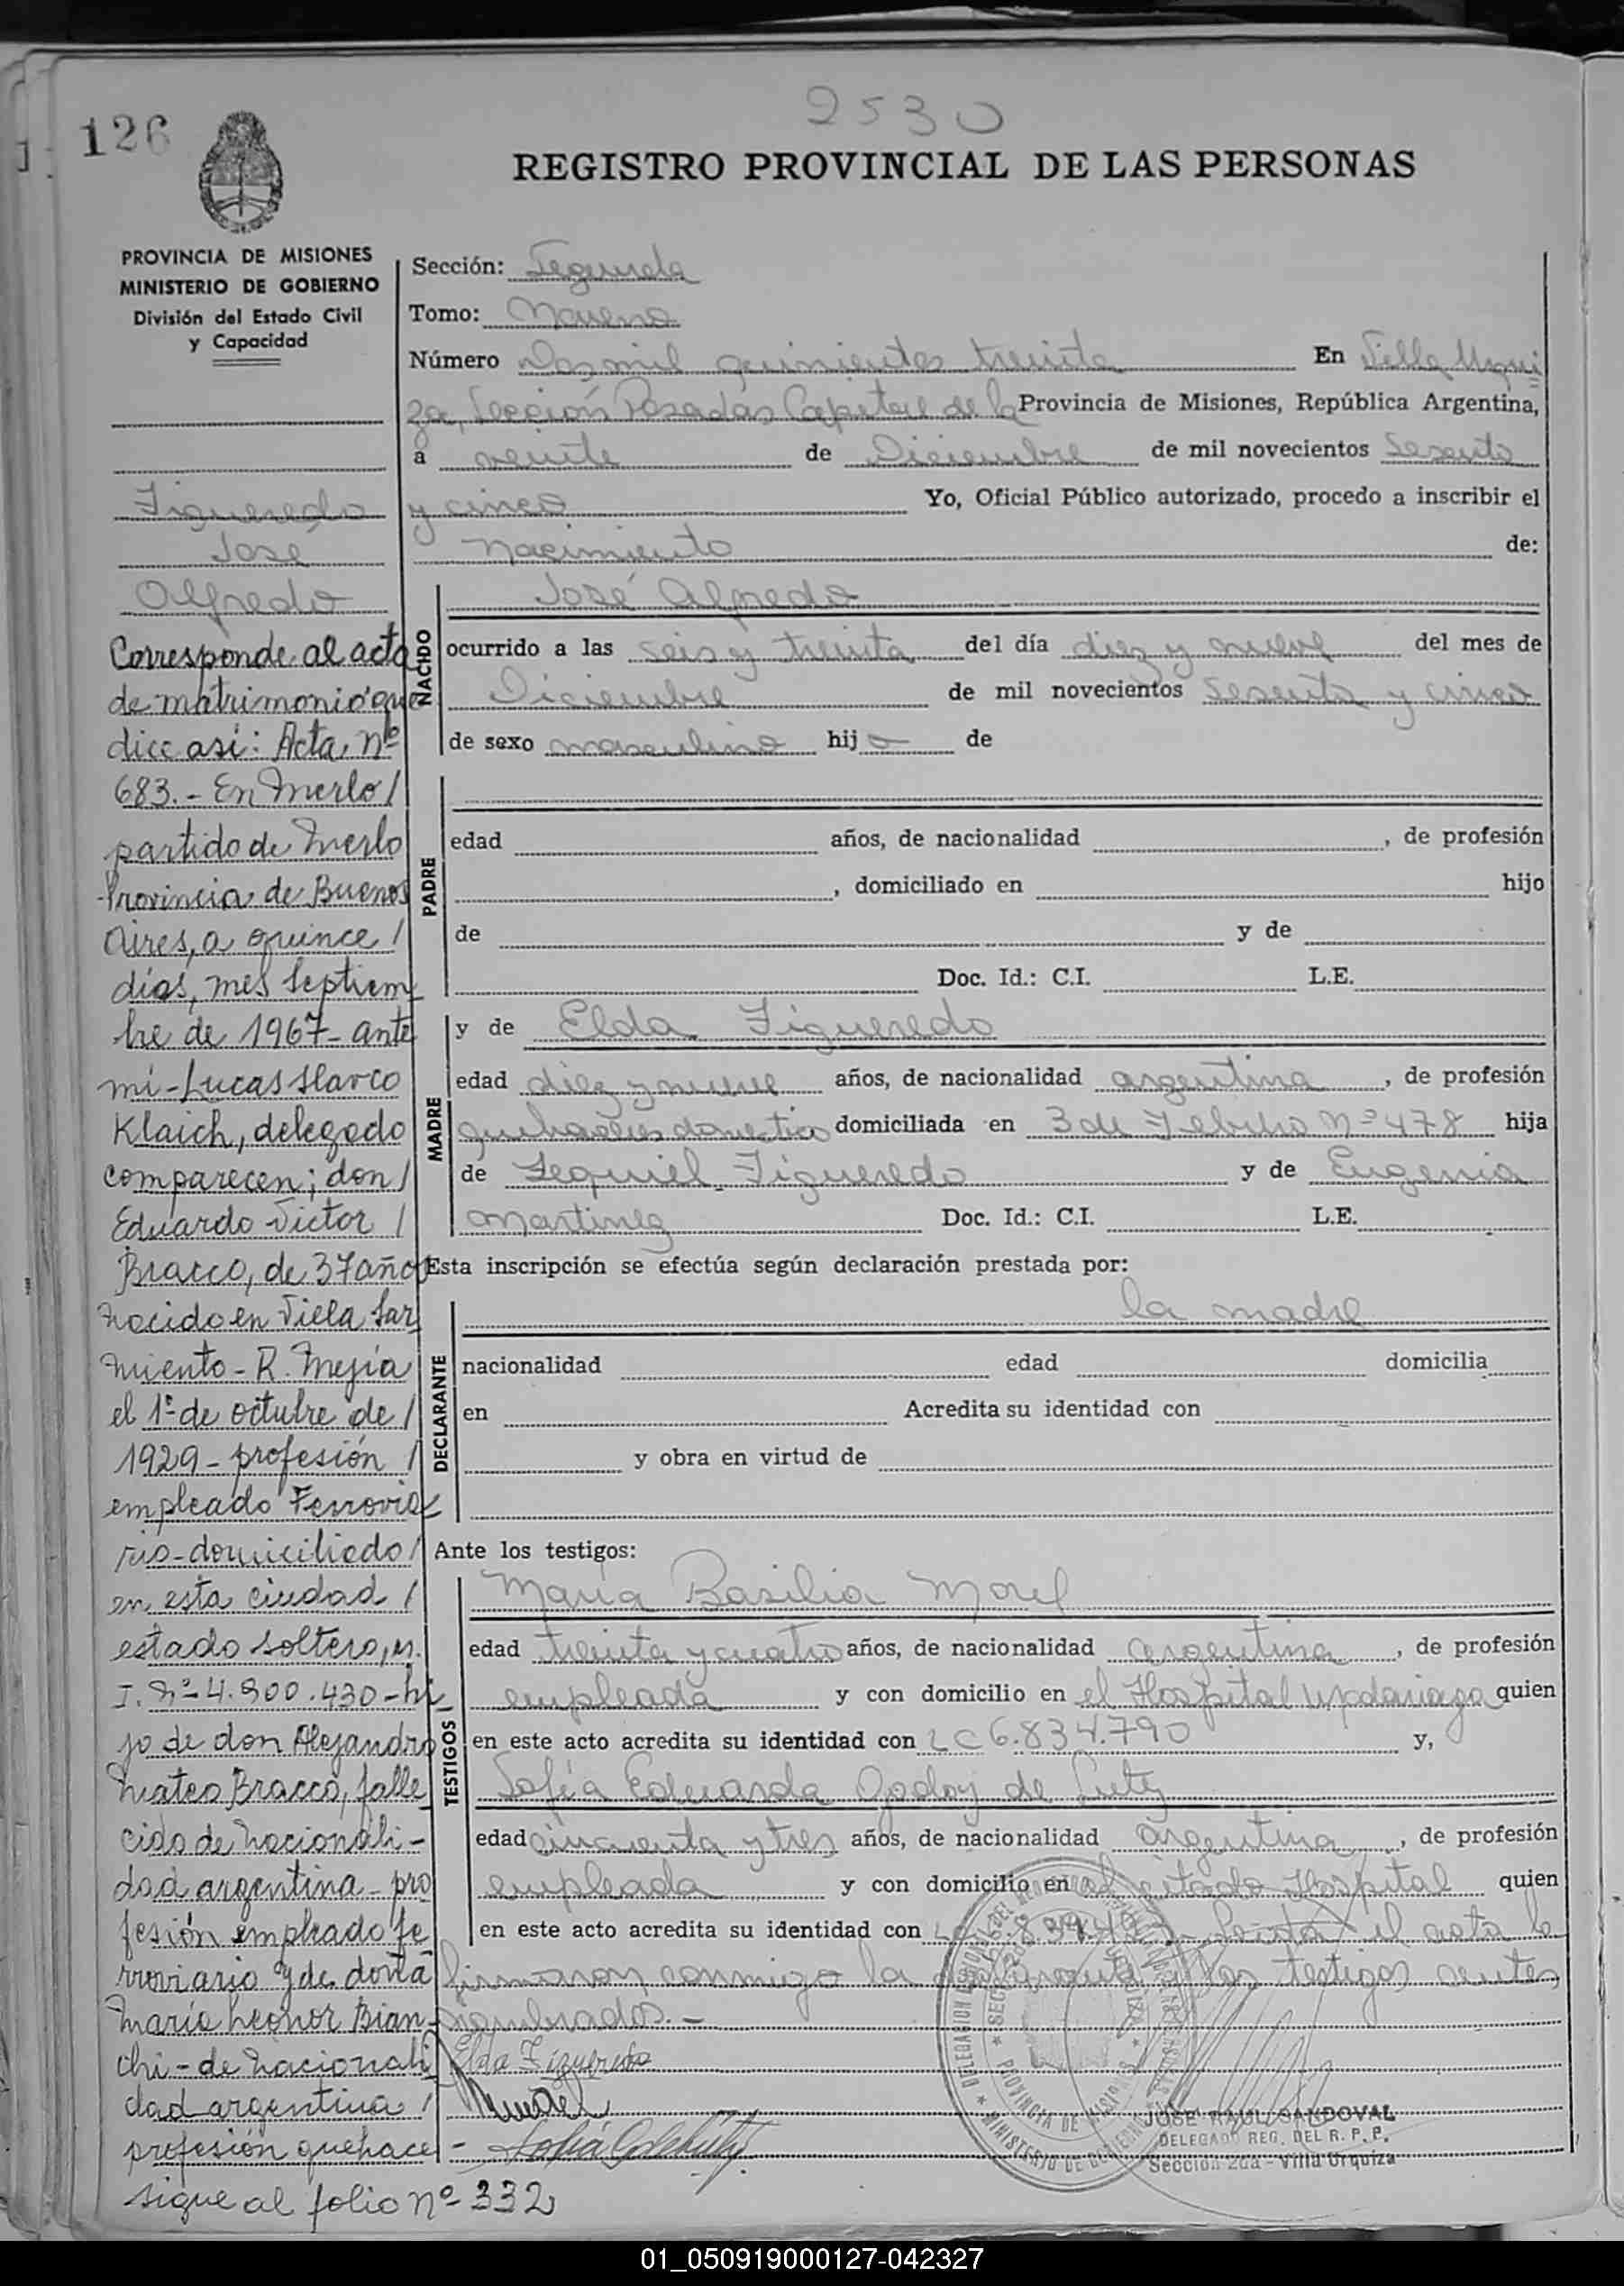 2530
126
REGISTRO PROVINCIAL DE LAS PERSONAS
PROVINCIA DE MISIONES
MINISTERIO DE GOBIERNO
División del Estado Civil
y Capacidad
Figueredo
José
Alfredo
Corresponde al acta
de matrimonio que
dice asi: Acta nº
683.- En Merlo /
partido de Merlo
Provincia de Buenos
Aires, a quince /
días, mes Septiem
bre de 1967- ante
mi-Lucas Marco
Klaich, delegado
comparecen; don /
Eduardo Victor /
Bracco, de 37 años
nacido en Villa Sar
miento - R. Mejía
el 1º de octubre de /
1929 - profesión /
empleado Ferrovia
rio-domiciliado /
en esta ciudad /
estado soltero, m.
I. Nº 4.900.430 - hi
jo de don Alejandro
Mateo Bracco, falle
cido de nacionali-
dad argentina - pro
fesión empleado fe
rroviario y de doña
María Leonor Bian-
chi - de nacionali
dad argentina /
profesión quehace-
sigue al folio nº 332
Sección: Segunda
Tomo: Noveno
Número Dos mil quinientos treinta En Villa Urqui
za, Sección Posadas Capital de la Provincia de Misiones, República Argentina,
a veinte de Diciembre de mil novecientos Sesenta
y cinco Yo, Oficial Público autorizado, procedo a inscribir el
Nacimiento de:
NACIDO
José Alfredo
ocurrido a las seis y treinta del día diez y nueve del mes de
Diciembre de mil novecientos Sesenta y cinco
de sexo masculino hijo de
PADRE
edad años, de nacionalidad , de profesión
, domiciliado en hijo
de y de
Doc. Id.: C.I. L.E.
MADRE
y de Elda Figueredo
edad diez y nueve años, de nacionalidad argentina , de profesión
quehaceres domestico domiciliada en 3 de Febrero Nº 478 hija
de Figueredo y de Eugenia
Martinez Doc. Id.: C.I. L.E.
Esta inscripción se efectúa según declaración prestada por:
DECLARANTE
la madre
nacionalidad edad domicilia
en Acredita su identidad con
y obra en virtud de
Ante los testigos:
TESTIGOS
María Basilia Morel
edad treinta y cuatro años, de nacionalidad argentina , de profesión
empleada y con domicilio en el Hospital Madariaga quien
en este acto acredita su identidad con LC 6.834.790 y,
Sofía Eduarda Godoy de
edad cincuenta y tres años, de nacionalidad argentina , de profesión
empleada y con domicilio en el citado Hospital quien
en este acto acredita su identidad con Leida el acta la
firmaron conmigo la y los testigos antes
nombrados.-
Elda Figueredo
JOSE RAUL SANDOVAL
DELEGADO REG. DEL R. P. P.
Sección 2da - Villa Urquiza
01_050919000127-042327